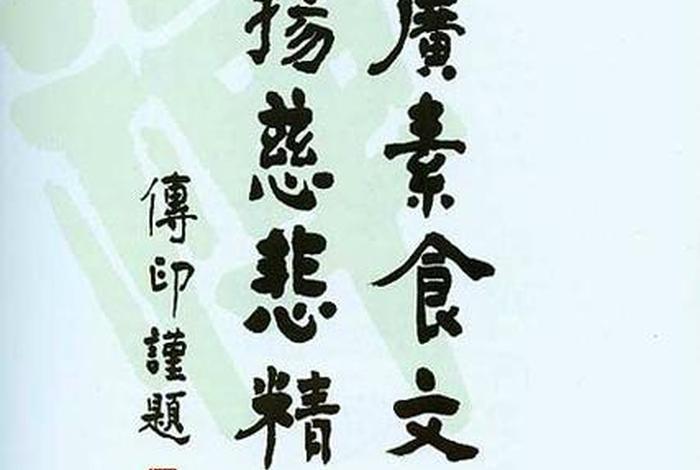 廣素食文
揚慈悲精
傳印謹題